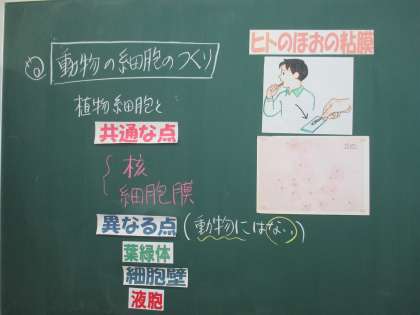 め 動物の細胞のつくり
植物細胞と
共通な点
核
細胞膜
異なる点(動物にはない)
葉緑体
細胞壁
液胞
ヒトのほおの粘膜